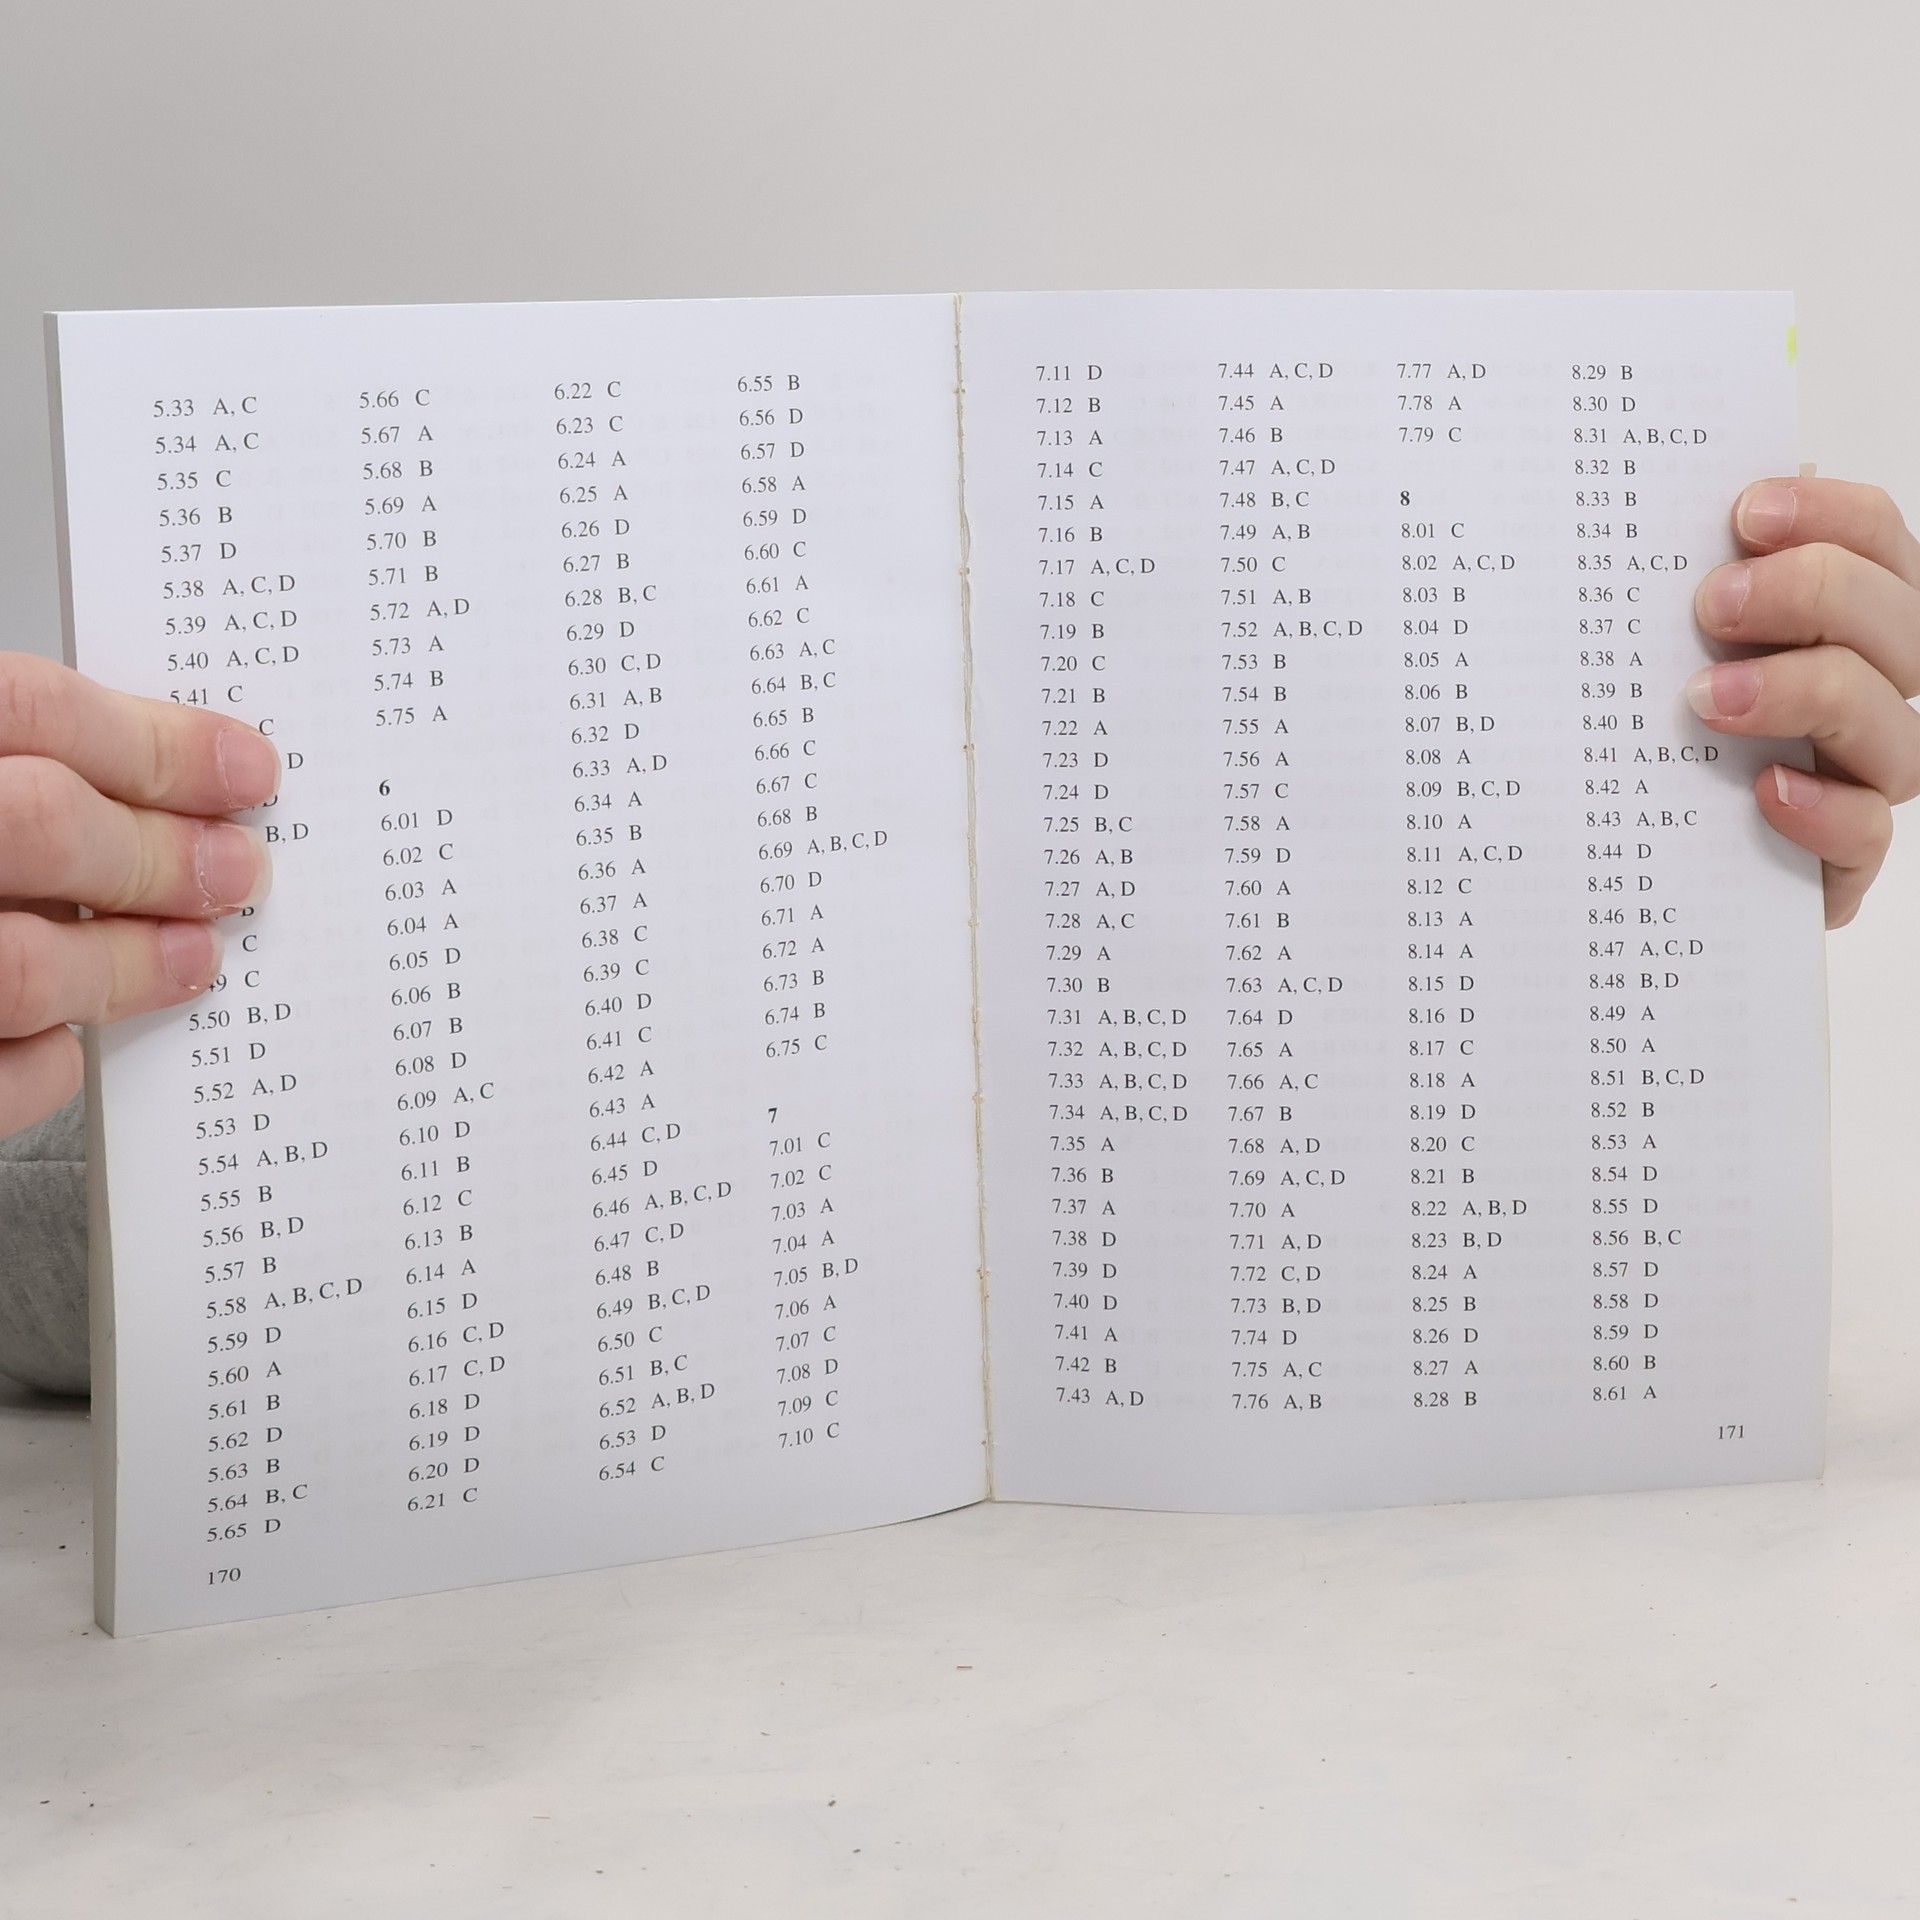 5.33 A, C
5.34 A, C
5.35 C
5.36 B
5.37 D
5.38 A, C, D
5.39 A, C, D
5.40 A, C, D
5.41 C
C
D
D
B, D
B
C
49 C
5.50 B, D
5.51 D
5.52 A, D
5.53 D
5.54 A, B, D
5.55 B
5.56 B, D
5.57 B
5.58 A, B, C, D
5.59 D
5.60 A
5.61 B
5.62 D
5.63 B
5.64 B, C
5.65 D
5.66 C
5.67 A
5.68 B
5.69 A
5.70 B
5.71 B
5.72 A, D
5.73 A
5.74 B
5.75 A
6
6.01 D
6.02 C
6.03 A
6.04 A
6.05 D
6.06 B
6.07 B
6.08 D
6.09 A, C
6.10 D
6.11 B
6.12 C
6.13 B
6.14 A
6.15 D
6.16 C, D
6.17 C, D
6.18 D
6.19 D
6.20 D
6.21 C
6.22 C
6.23 C
6.24 A
6.25 A
6.26 D
6.27 B
6.28 B, C
6.29 D
6.30 C, D
6.31 A, B
6.32 D
6.33 A, D
6.34 A
6.35 B
6.36 A
6.37 A
6.38 C
6.39 C
6.40 D
6.41 C
6.42 A
6.43 A
6.44 C, D
6.45 D
6.46 A, B, C, D
6.47 C, D
6.48 B
6.49 B, C, D
6.50 C
6.51 B, C
6.52 A, B, D
6.53 D
6.54 C
6.55 B
6.56 D
6.57 D
6.58 A
6.59 D
6.60 C
6.61 A
6.62 C
6.63 A, C
6.64 B, C
6.65 B
6.66 C
6.67 C
6.68 B
6.69 A, B, C, D
6.70 D
6.71 A
6.72 A
6.73 B
6.74 B
6.75 C
7
7.01 C
7.02 C
7.03 A
7.04 A
7.05 B, D
7.06 A
7.07 C
7.08 D
7.09 C
7.10 C
170
7.11 D
7.12 B
7.13 A
7.14 C
7.15 A
7.16 B
7.17 A, C, D
7.18 C
7.19 B
7.20 C
7.21 B
7.22 A
7.23 D
7.24 D
7.25 B, C
7.26 A, B
7.27 A, D
7.28 A, C
7.29 A
7.30 B
7.31 A, B, C, D
7.32 A, B, C, D
7.33 A, B, C, D
7.34 A, B, C, D
7.35 A
7.36 B
7.37 A
7.38 D
7.39 D
7.40 D
7.41 A
7.42 B
7.43 A, D
7.44 A, C, D
7.45 A
7.46 B
7.47 A, C, D
7.48 B, C
7.49 A, B
7.50 C
7.51 A, B
7.52 A, B, C, D
7.53 B
7.54 B
7.55 A
7.56 A
7.57 C
7.58 A
7.59 D
7.60 A
7.61 B
7.62 A
7.63 A, C, D
7.64 D
7.65 A
7.66 A, C
7.67 B
7.68 A, D
7.69 A, C, D
7.70 A
7.71 A, D
7.72 C, D
7.73 B, D
7.74 D
7.75 A, C
7.76 A, B
7.77 A, D
7.78 A
7.79 C
8
8.01 C
8.02 A, C, D
8.03 B
8.04 D
8.05 A
8.06 B
8.07 B, D
8.08 A
8.09 B, C, D
8.10 A
8.11 A, C, D
8.12 C
8.13 A
8.14 A
8.15 D
8.16 D
8.17 C
8.18 A
8.19 D
8.20 C
8.21 B
8.22 A, B, D
8.23 B, D
8.24 A
8.25 B
8.26 D
8.27 A
8.28 B
8.29 B
8.30 D
8.31 A, B, C, D
8.32 B
8.33 B
8.34 B
8.35 A, C, D
8.36 C
8.37 C
8.38 A
8.39 B
8.40 B
8.41 A, B, C, D
8.42 A
8.43 A, B, C
8.44 D
8.45 D
8.46 B, C
8.47 A, C, D
8.48 B, D
8.49 A
8.50 A
8.51 B, C, D
8.52 B
8.53 A
8.54 D
8.55 D
8.56 B, C
8.57 D
8.58 D
8.59 D
8.60 B
8.61 A
171